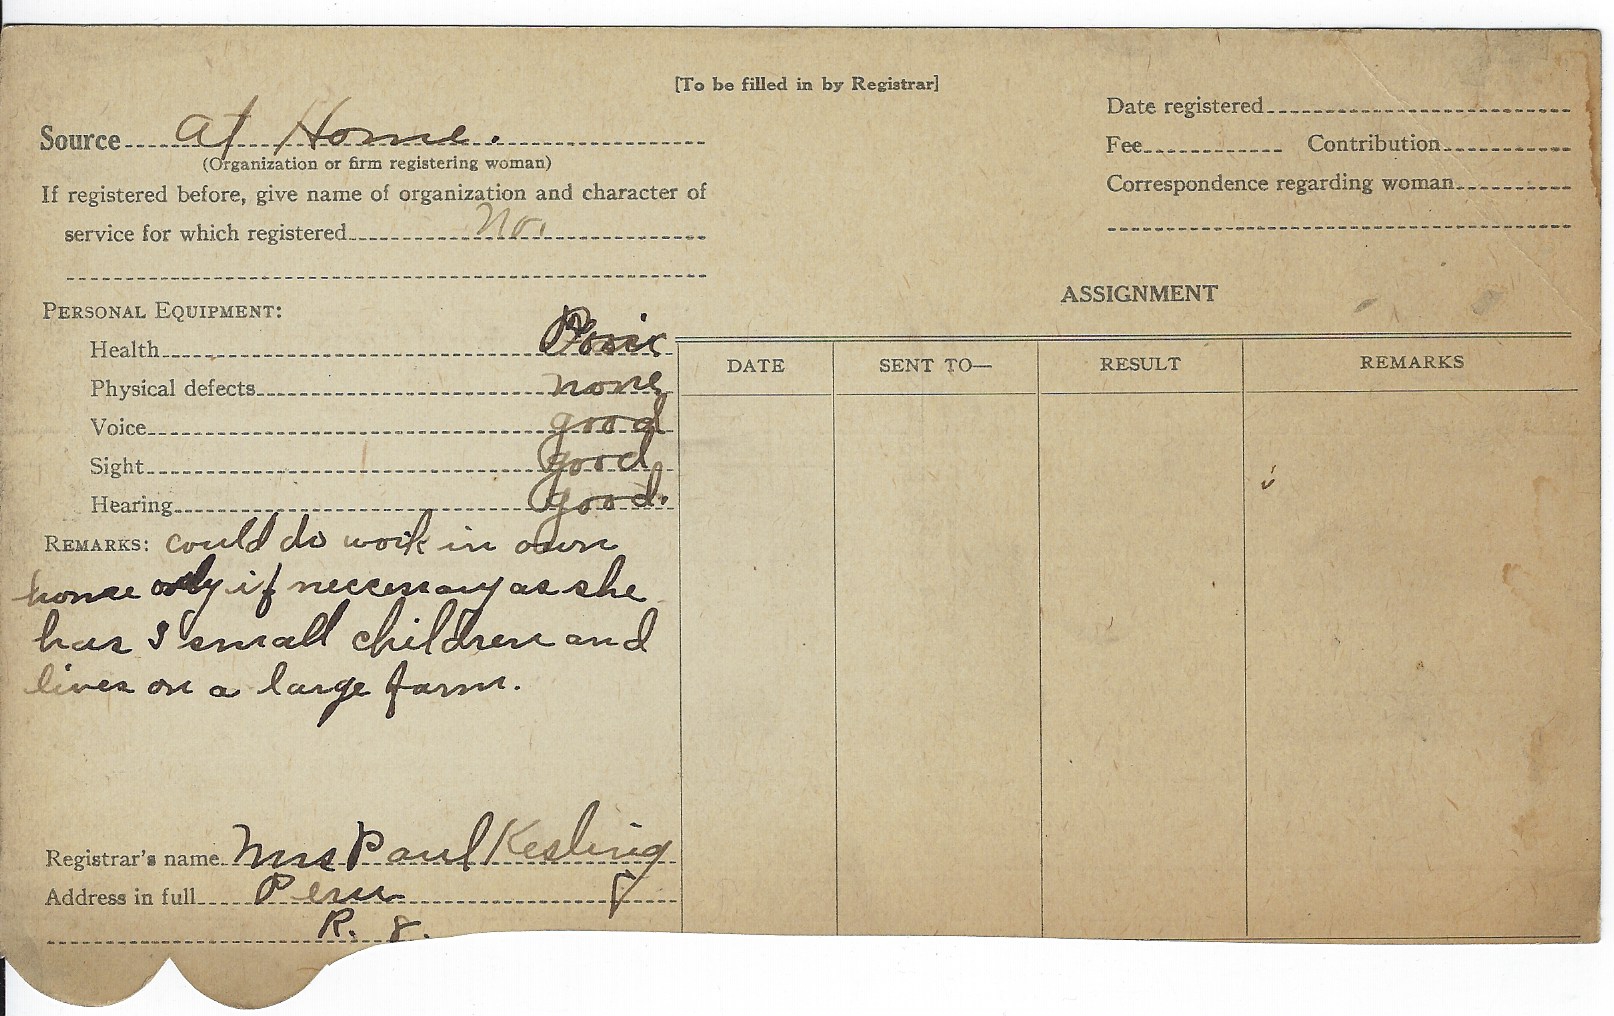 [To be filled in by Registrar]
Source At Home.
(Organization or firm registering woman)
If registered before, give name of organization and character of
service for which registered No.
Date registered
Fee Contribution
Correspondence regarding woman
PERSONAL EQUIPMENT:
Health
Physical defects none
Voice good
Sight good
Hearing good.
REMARKS: could do work in own
home only if necessary as she
has 3 small children and
lives on a large farm.
Registrar's name Mrs Paul Kesling
Address in full Peru
R. 8.
ASSIGNMENT
DATE SENT TO— RESULT REMARKS